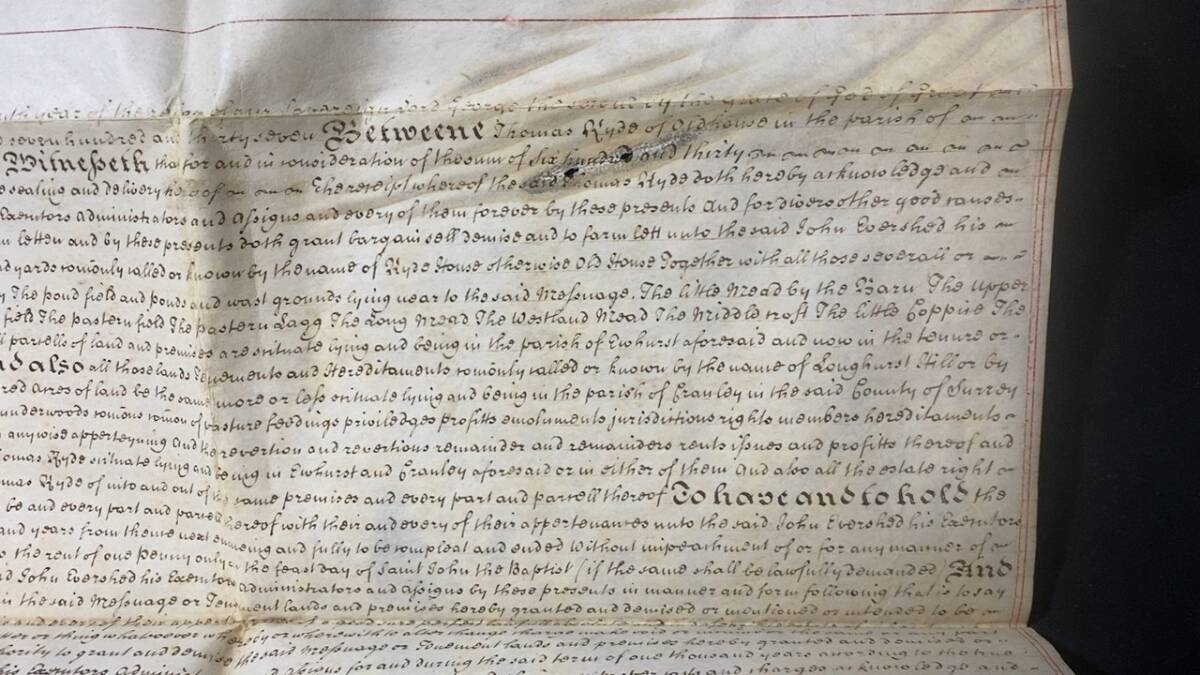 year of the reign of our Soveraign Lord George the second by the grace of God of Great
seven hundred and thirty seven Betweene Thomas Ryde of Old house in the parish of
Witnesseth that for and in consideration of the sum of Six hundred and thirty
sealing and delivery hereof The receipt whereof the said Thomas Ryde doth hereby acknowledge and
Executors Administrators and Assigns and every of them forever by these presents And for divers other good causes
letten and by these presents doth grant bargain sell demise and to farm lett unto the said John Evershed his
yards comonly called or known by the name of Ryde House otherwise Old House Together with all those severall
The pond field and ponds and wast grounds lying near to the said Messuage. The little Mead by the Barn The Upper
field The pastern field The pastern Lagg The Long Mead The Westland Mead The Middle croft The little Coppice The
parcells of land and premises are scituate lying and being in the parish of Ewhurst aforesaid and now in the tenure or
And also all those lands Tenements and Hereditaments comonly called or known by the name of Longhurst Hill or by
Acres of land be the same more or less scituate lying and being in the parish of Cranley in the said County of Surrey
underwoods comons comon of pasture feedings priviledges profitts emoluments jurisdictions rights members hereditaments
anywise apperteyning And the revertion and revertions remainder and remainders rents issues and profitts thereof and
Thomas Ryde scituate lying and being in Ewhurst and Cranley aforesaid or in either of them And also all the estate right
Ryde of into and out of the same premises and every part and parcell thereof To have and to hold the
be and every part and parcell thereof with their and every of their appertenances unto the said John Evershed his Executors
and years from thence next ensueing and fully to be compleat and ended Without impeachment of or for any manner of
the rent of one penny only on the feast day of Saint John the Baptist (if the same shall be lawfully demanded) And
John Evershed his Executors Administrators and Assigns by these presents in manner and form following that is to say
the said Messuage or Tenement lands and premises hereby granted and demised or mentioned or intended to be
and every of their
or thing whatsoever whereby or to alter change
to grant and demise the said Messuage or Tenement lands and premises hereby granted and demised or
his Executors and Assigns for and during the said term of one thousand years according to the true
and charges acknowledge and